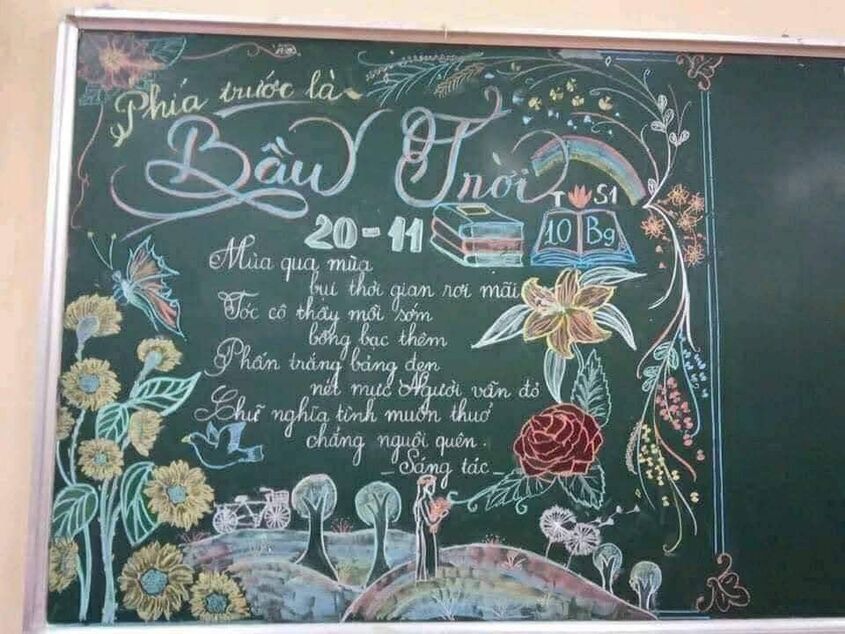 Phía trước là
Bầu Trời
T S1
20-11
10 B9
Mùa qua mùa
bụi thời gian rơi mãi
Tóc cô thầy mỗi sớm
bỗng bạc thêm
Phấn trắng bảng đen
nét mực Người vẫn đỏ
Chữ nghĩa tình muôn thuở
chẳng nguôi quên.
_Sáng tác_